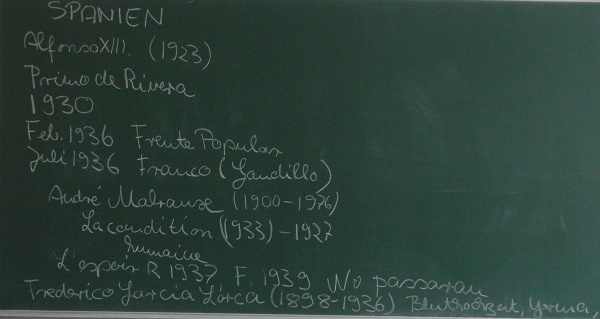 SPANIEN
Alfonso XIII. (1923)
Primo de Rivera
1930
Feb. 1936 Frente Popular
Juli 1936 Franco (Gaudillo)
André Malrause (1900-1976)
La condition (1933) - 1927
humaine
L'espoir R 1937 F. 1939 No passaran
Frederico García Lórca (1898-1936) Bluthochzeit, Yerma,